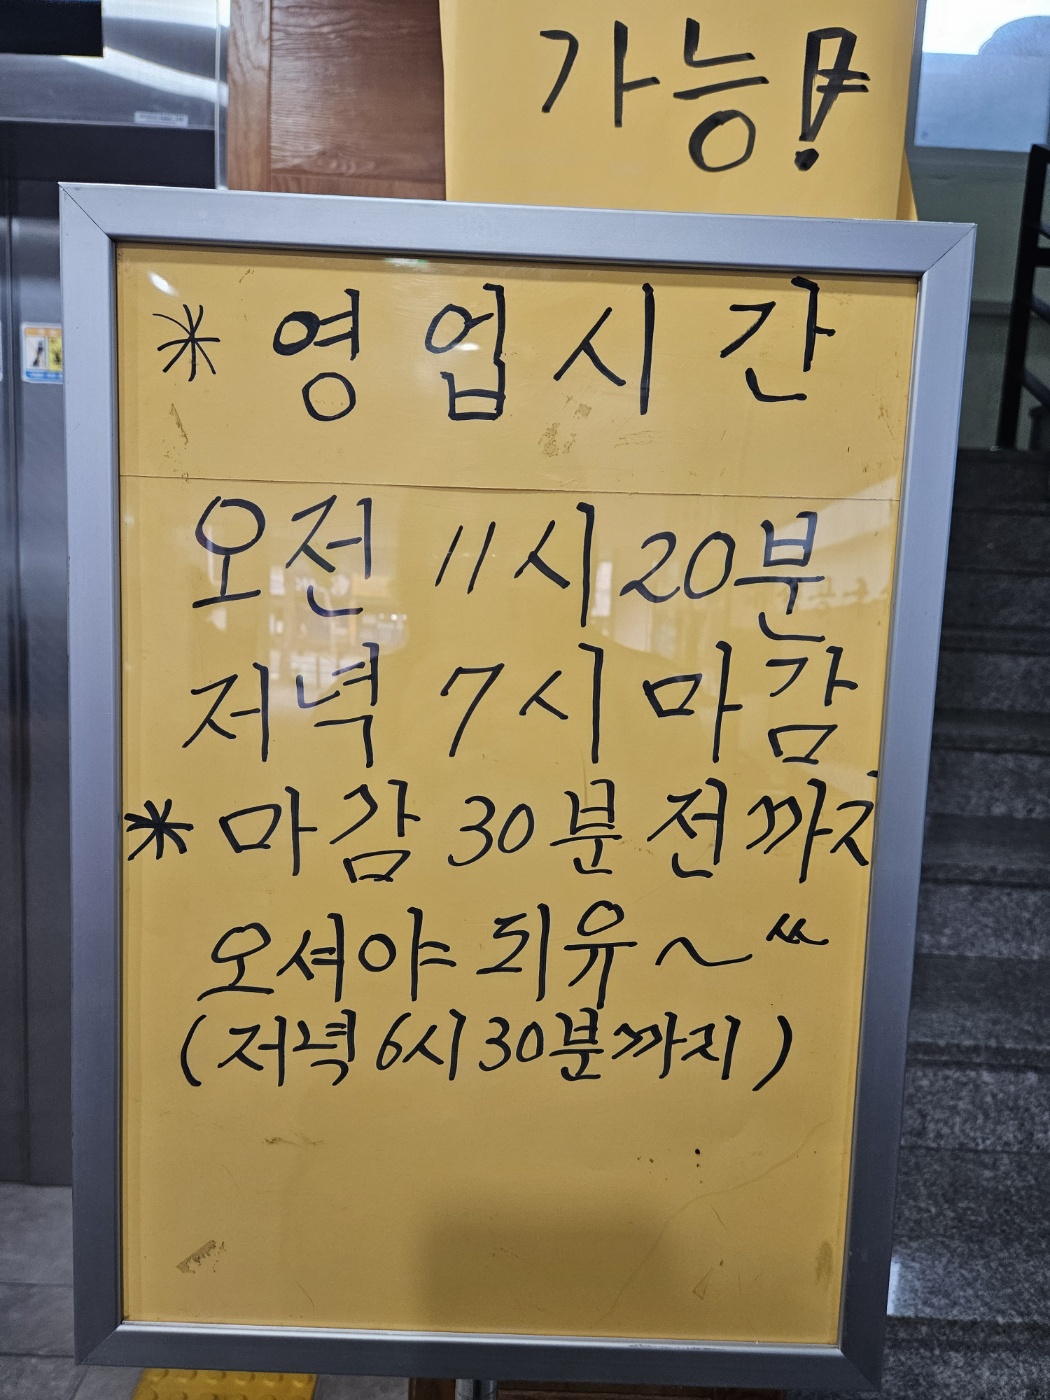 가능!
* 영업시간
오전 11시 20분
저녁 7시 마감
* 마감 30분 전까지
오셔야 되유~“
(저녁 6시 30분까지)